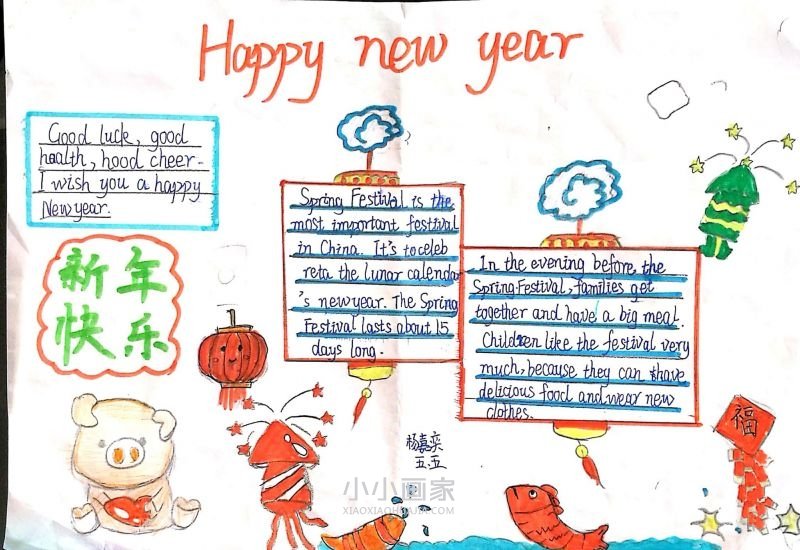 Happy new year
Good luck, good
health, hood cheer.
I wish you a happy
New year.
新年
快乐
Spring Festival is the
most important festival
in China. It's to celeb
reta the lunar calendar
's new year. The Spring
Festival lasts about 15
days long.
In the evening before the
Spring Festival, families get
together and have a big meal.
Children like the festival very
much, because they can thave
delicious food and wear new
clothes.
福
杨嘉奕
五.五
小小画家
XIAOXIAOHUAJIA.COM